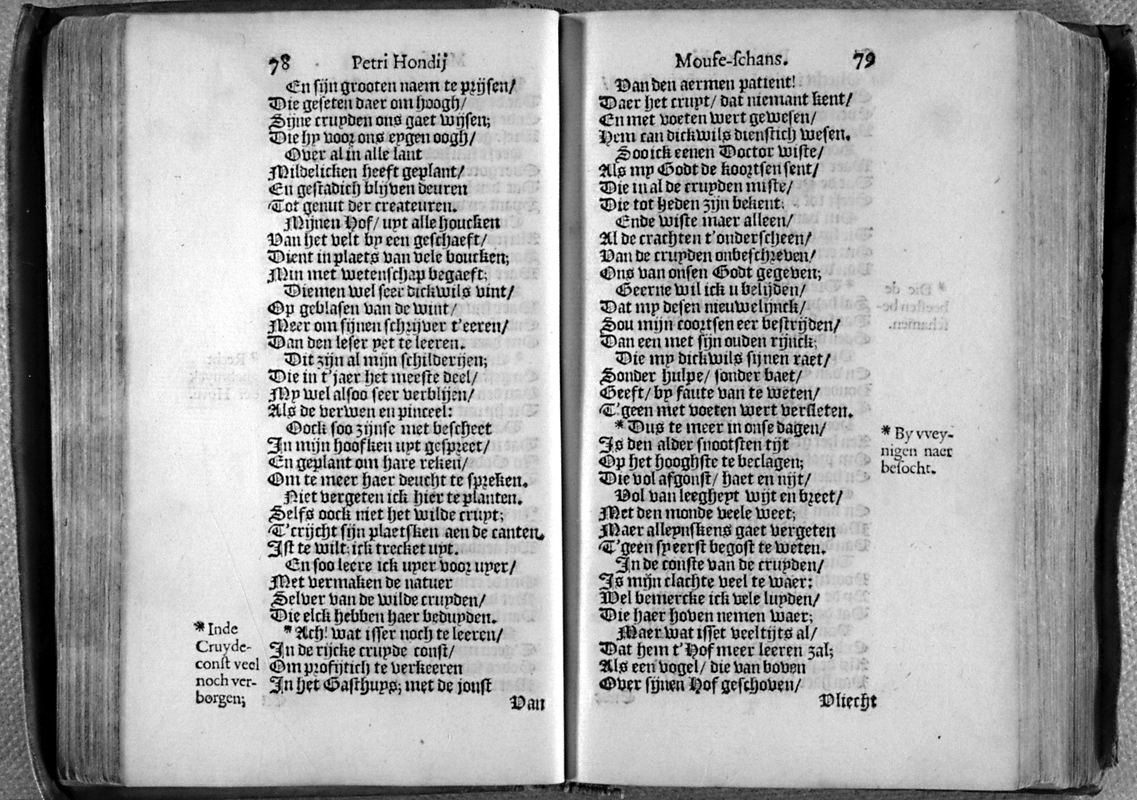 78 Petri Hondij
En sijn grooten naem te prijsen/
Die geseten daer om hoogh/
Sijne cruyden ons gaet wijsen;
Die hy voor ons eygen oogh/
Over al in alle lant
Mildelicken heeft geplant/
En gestadich blijven deuren
Tot genut der createuren.
Mijnen Hof/ uyt alle houcken
Van het velt by een geschaeft/
Dient in plaets van vele boucken;
Min met wetenschap begaeft;
Diemen wel seer dickwils vint/
Op geblasen van de wint/
Meer om sijnen schrijver t'eeren/
Dan den leser yet te leeren.
Dit zijn al mijn schilderijen;
Die in t'jaer het meeste deel/
My wel alsoo seer verblijen/
Als de verwen en pinceel:
Oock soo zijnse met bescheet
In mijn hoofken uyt gespreet/
En geplant om hare reken/
Om te meer haer deucht te spreken.
Niet vergeten ick hier te planten.
Selfs oock niet het wilde cruyt;
T'crijcht sijn plaetsken aen de canten.
Ist te wilt; ick trecket uyt.
En soo leere ick uyer voor uyer/
Met vermaken de natuer
Selver van de wilde cruyden/
Die elck hebben haer beduyden.
* Ach! wat isser noch te leeren/
In de rijcke cruyde const/
Om profijtich te verkeeren
In het Gasthuys; met de jonst
Van
* Inde
Cruyde-
const veel
noch ver-
borgen;
Mouse-schans. 79
Van den aermen patient!
Daer het cruyt/ dat niemant kent/
En met voeten wert gewesen/
Hem can dickwils dienstich wesen.
Soo ick eenen Doctor wiste/
Als my Godt de koortsen sent/
Die in al de cruyden miste/
Die tot heden zijn bekent;
Ende wiste maer alleen/
Al de crachten t'onderscheen/
Van de cruyden onbeschreven/
Ons van onsen Godt gegeven;
Geerne wil ick u belijden/
Dat my desen nieuwelijnck/
Sou mijn coortsen eer bestrijden/
Dan een met sijn ouden rijnck;
Die my dickwils sijnen raet/
Sonder hulpe/ sonder baet/
Geeft/ by faute van te weten/
T'geen met voeten wert versleten.
* Dus te meer in onse dagen/
Is den alder snootsten tijt
Op het hooghste te beclagen;
Die vol afgonst/ haet en nijt/
Vol van leegheyt wijt en breet/
Met den monde veele weet;
Maer alleynskens gaet vergeten
T'geen sy eerst begost te weten.
In de conste van de cruyden/
Is mijn clachte veel te waer:
Wel bemercke ick vele luyden/
Die haer hoven nemen waer;
Maer wat isset veeltijts al/
Dat hem t'Hof meer leeren zal;
Als een vogel/ die van boven
Over sijnen Hof geschoven/
Vliecht
* By vvey-
nigen naer
besocht.